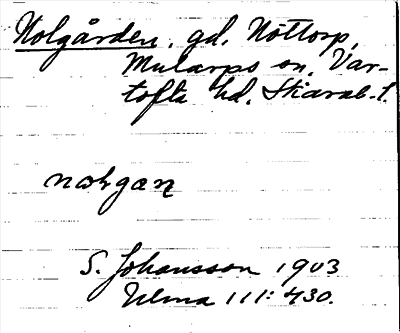 Nolgården, gd. Nöttorp,
Mularps sn, Var-
tofta hd. Skarab. l.
nɷɫgæn
S. Johansson 1903
Ulma 111:430.